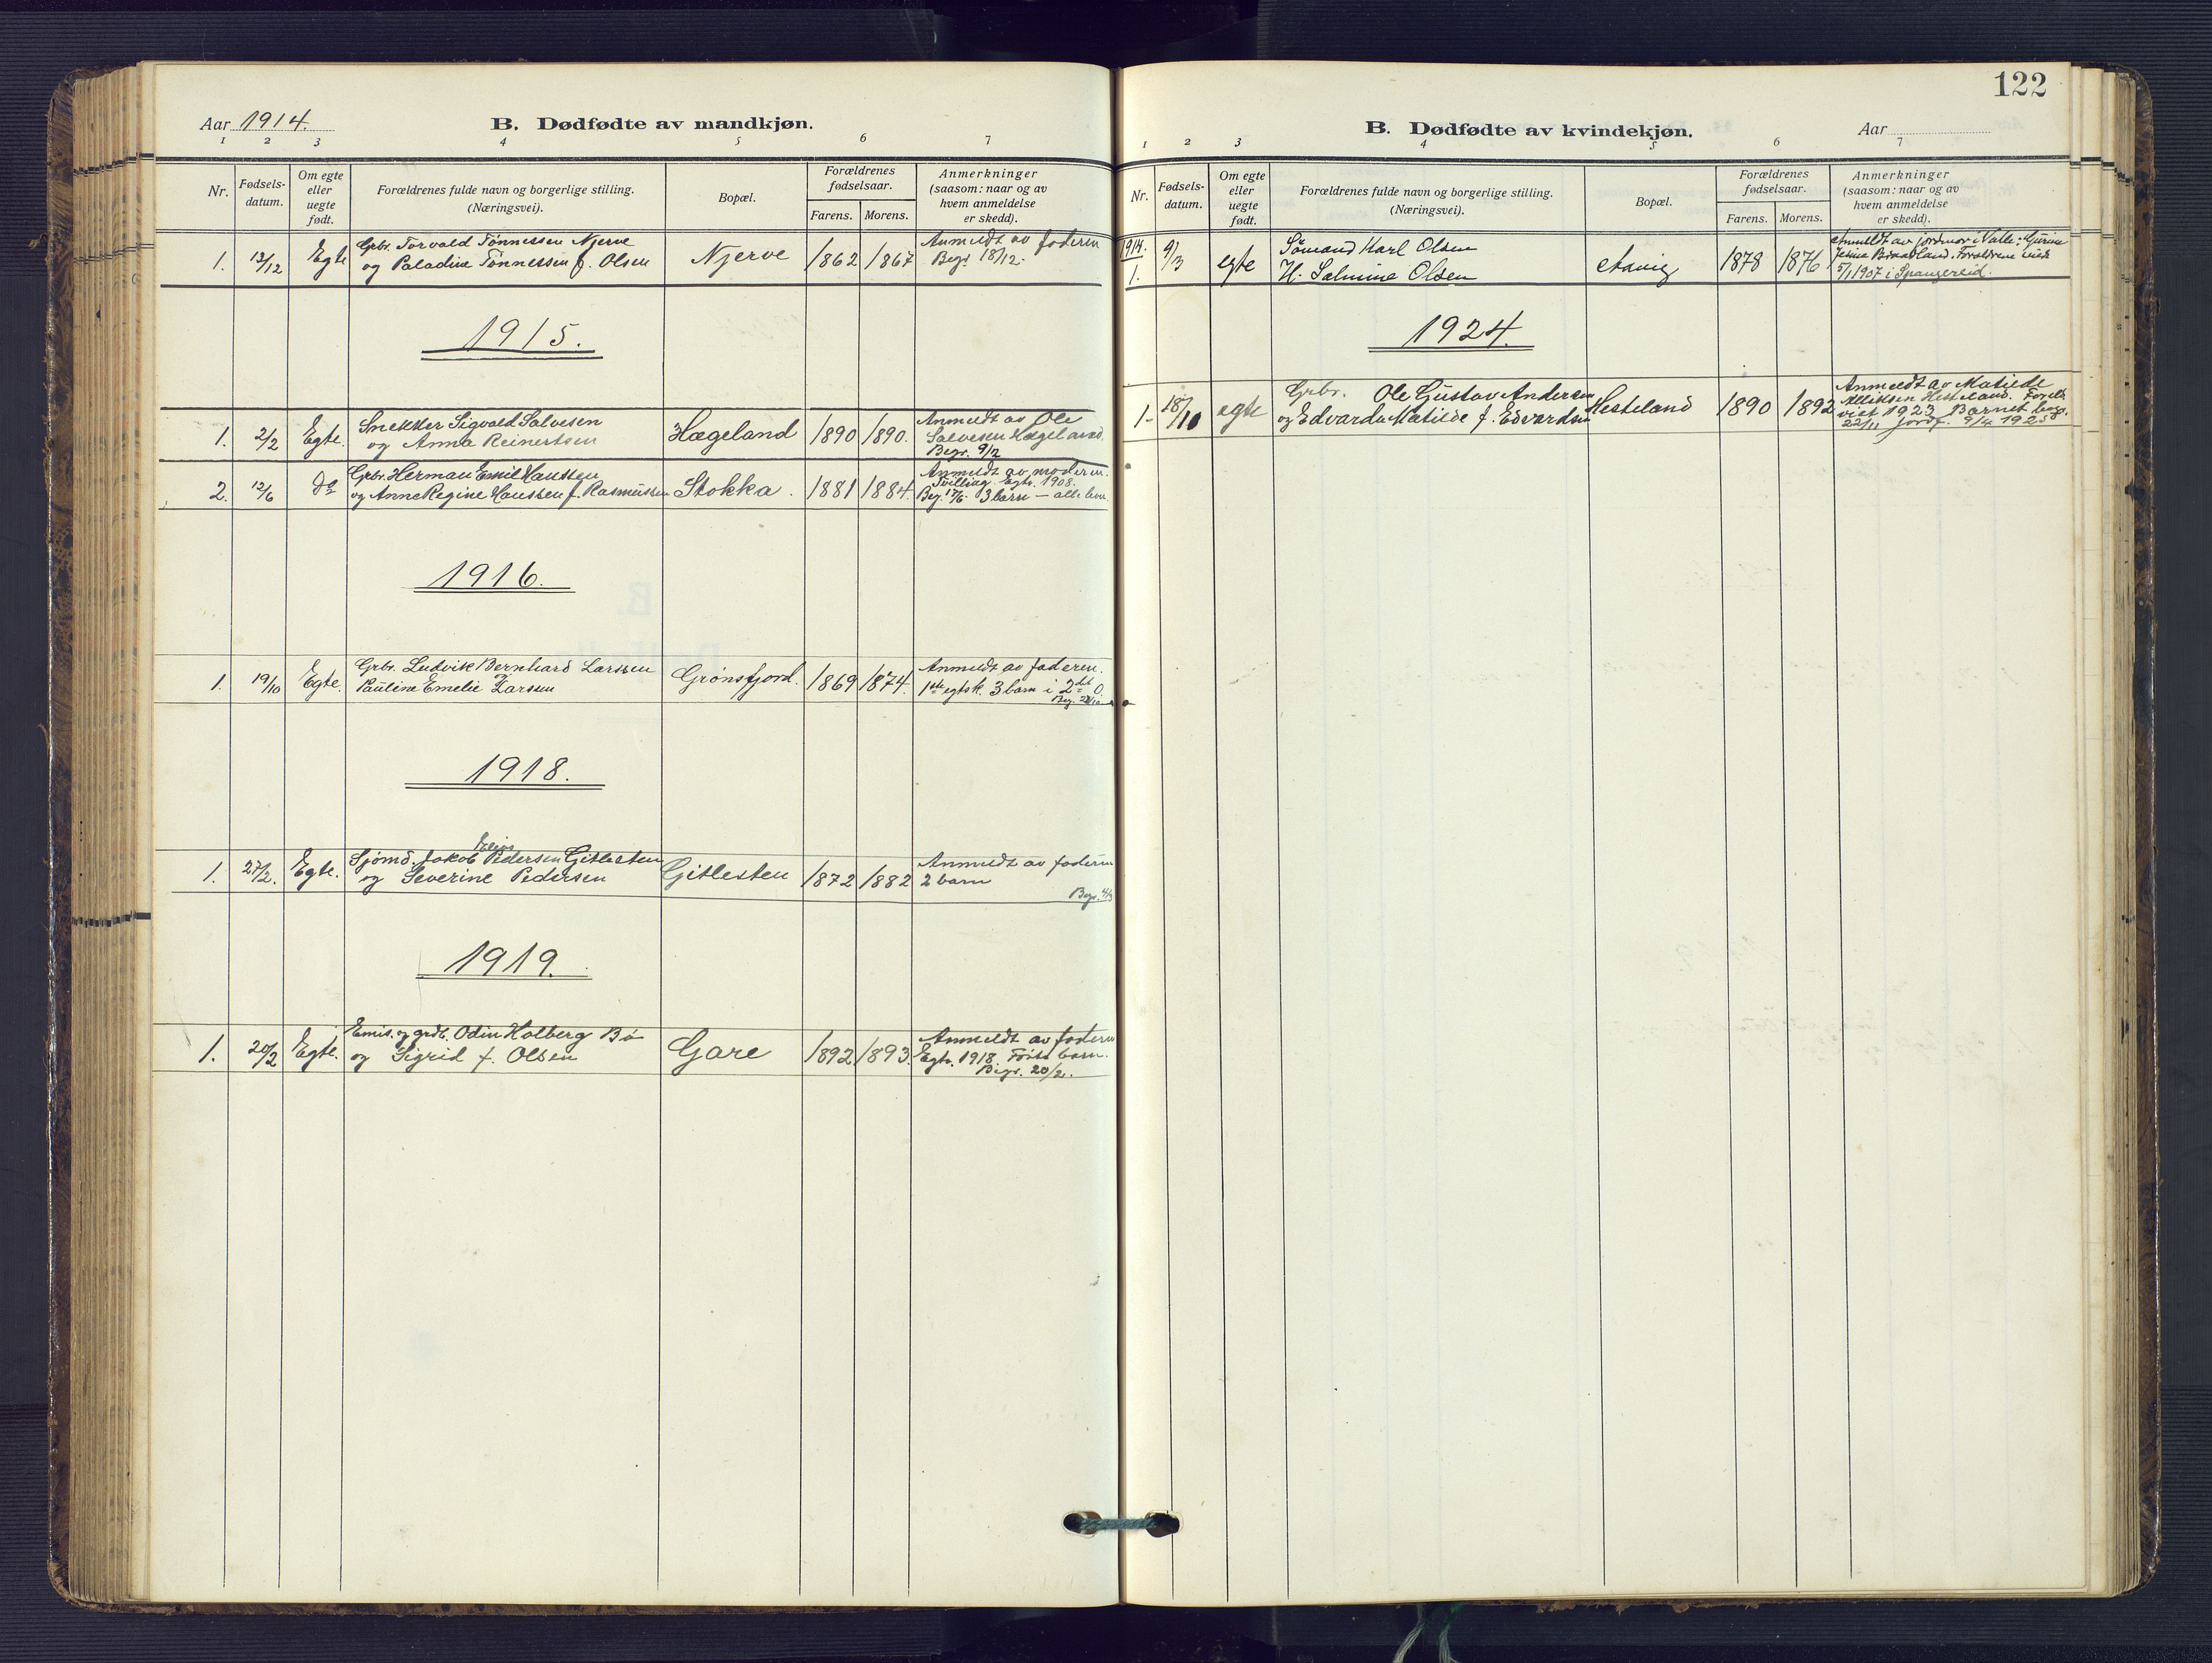 Aar 1914.
B. Dødfødte av mandkjøn.
1 2 3 4 5 6 7
Nr.
Fødsels-
datum.
Om egte
eller
uegte
født.
Forældrenes fulde navn og borgerlige stilling.
(Næringsvei).
Bopæl.
Forældrenes
fødselsaar.
Farens. Morens.
Anmerkninger
(saasom: naar og av
hvem anmeldelse
er skedd).
1. 12/12 Egte
Grbr. Torvald Tønnessen Njerve
og Paladine Tønnessen f. Olsen
Njerve 1862 1867
Anmeldt av faderen
Begr. 18/12.
1915.
1. 2/2 Egte.
Snekker Sigvald Salvesen
og Anna Reinertsen
Hægeland 1890 1890.
Anmeldt av Ole
Salvesen Hægeland.
Begr. 9/2
2. 12/6 do
Grbr. Herman Emil Hanssen
og Anne Regine Hanssen f. Rasmussen
Stokka. 1881 1884.
Anmeldt av moderen.
Tvilling. Egtv. 1908.
Beg. 17/6. 3 barn – alle lev.
1916.
1. 19/10 Egte.
Grbr. Ludvik Bernhard Larssen
og
Pauline Emelie Larssen
Grønsfjord. 1869 1874.
Anmeldt av faderen.
1ste egtsk. 3 barn i 2det 0.
1918.
1. 27/2. Egte.
Elias
Sjømd. Jakob Pedersen Gitlesten
og Severine Pedersen
Gitlesten 1872 1882
Anmeldt av faderen
2 barn
Begr. 4/3
1919.
1. 20/2 Egte.
Emis. og grdb. Odin Holberg Bø
og Sigrid f. Olsen
Gare 1892 1893.
Anmeldt av faderen
Egtv. 1918. Første barn.
Begr. 20/2.
122
B. Dødfødte av kvindekjøn.
Aar
1 2 3 4 5 6 7
Nr.
Fødsels-
datum.
Om egte
eller
uegte
født.
Forældrenes fulde navn og borgerlige stilling.
(Næringsvei).
Bopæl.
Forældrenes
fødselsaar.
Farens. Morens.
Anmerkninger
(saasom: naar og av
hvem anmeldelse
er skedd).
1914.
1. 9/3 egte
Sømand Karl Olsen
H: Salmine Olsen
Aavig 1878 1876
Anmeldt av jordmor i Valle: Gurine
Jesine Braadland. Forældrene viede
5/1 1907 i Spangereid.
1924.
1. 18/10 egte
Grbr. Ole Gustav Andersen
og Edvarda Matilde f. Edvardsen
Hesteland 1890 1892
Anmeldt av Matilde
Hesteland. Foreld.
viet 1923 Barnet begr.
22/11 jordf. 9/4 1925